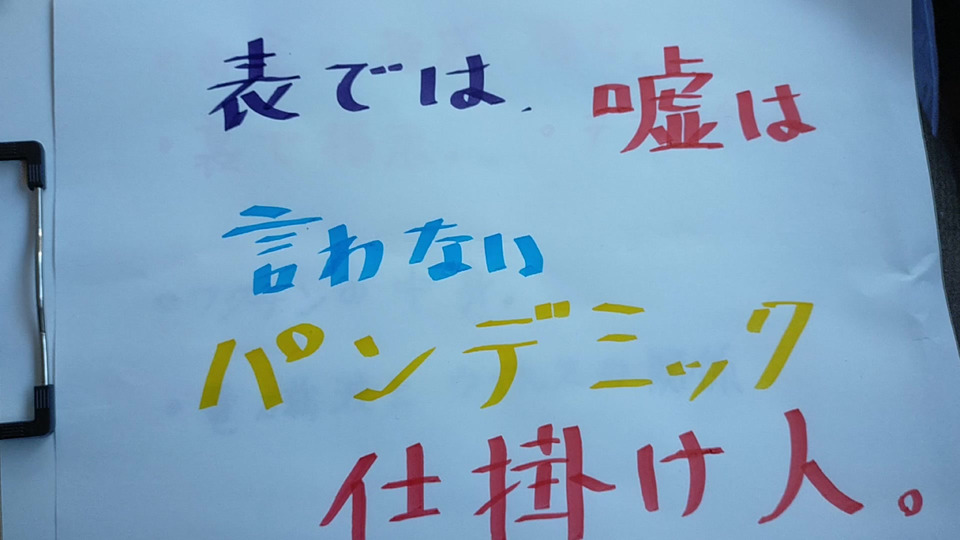 表では、嘘は
言わない
パンデミック
仕掛け人。